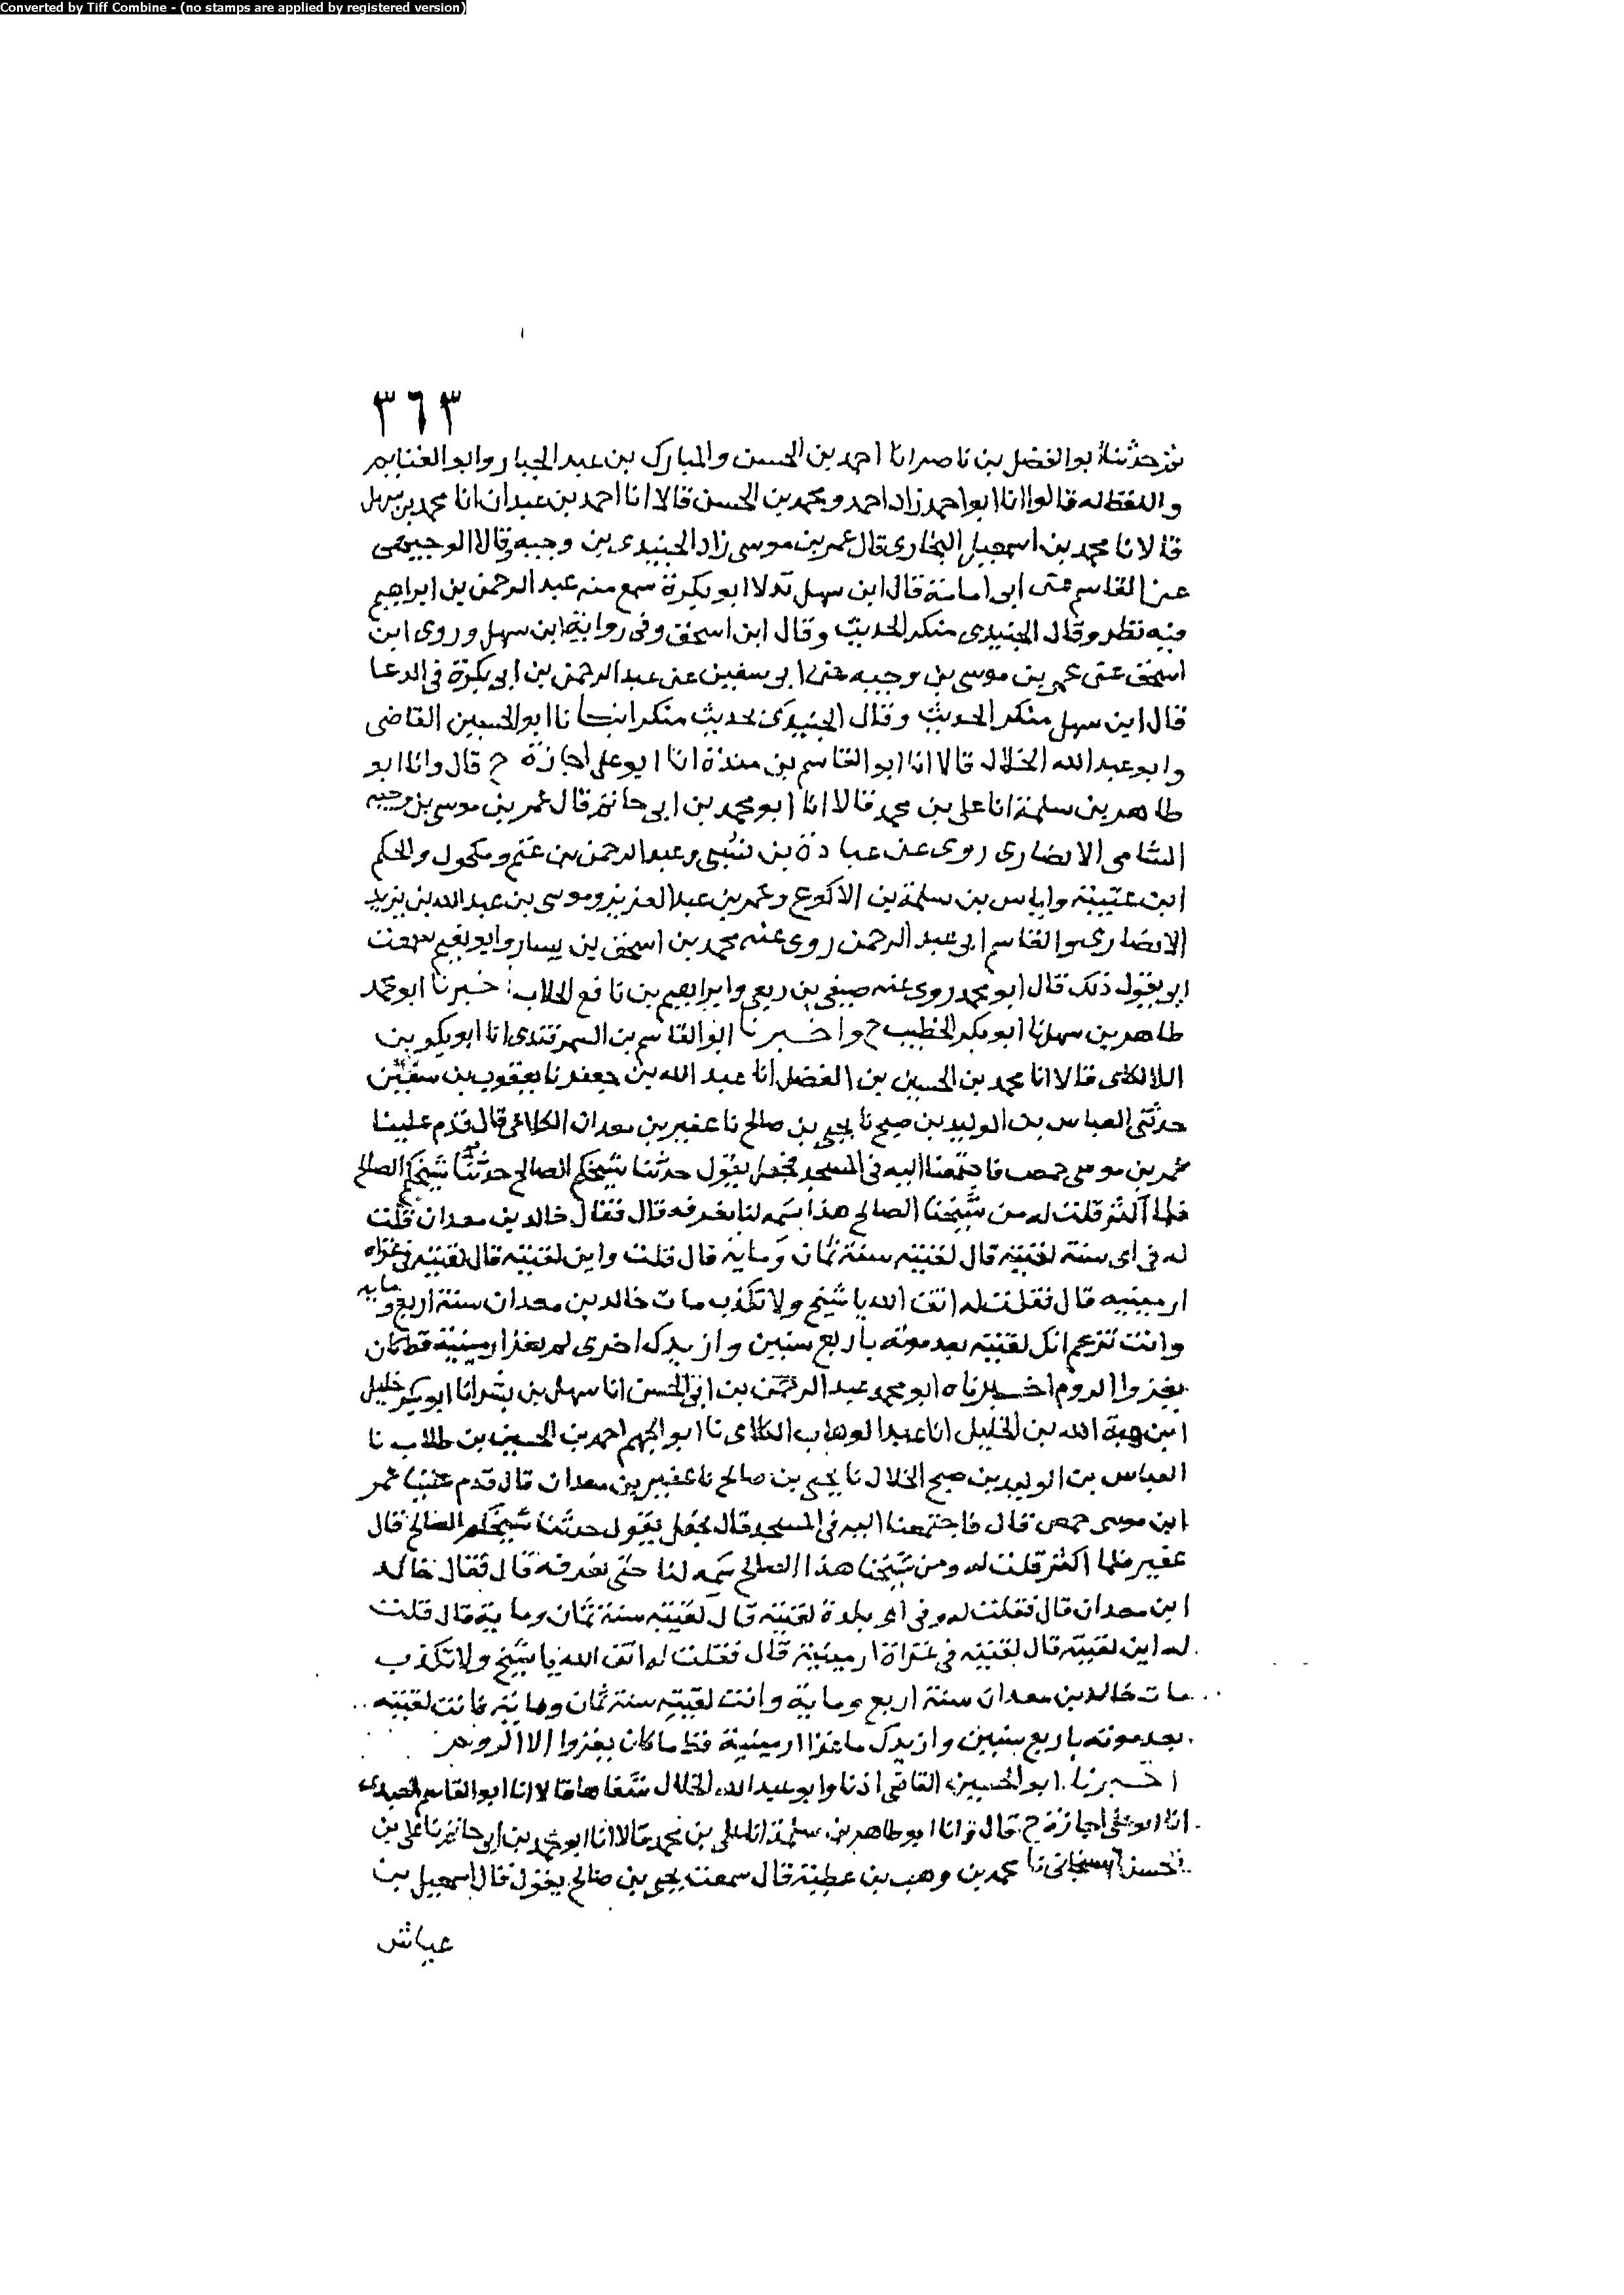 Converted by Tiff Combine - (no stamps are applied by registered version)
٣٦٣
ثم حدثنا ابو الفضل بن ناصر انا احمد بن الحسن والمبارك بن عبد الجبار وابو الغنايم
واللفظ له قالوا انا ابو احمد زاد احمد ومحمد بن الحسن قالا انا احمد بن عبدان انا محمد بن سهل
قالا نا محمد بن اسمعيل البخاري قال عمر بن موسى زاد الجنيدي بن وجيه وقالا الوجيهي
عن القاسم عن ابي امامة قال ابن سهل بدلا ابو بكرة سمع منه عبد الرحمن بن ابراهيم
فيه نظر وقال الجنيدي منكر الحديث وقال ابن اسحق وفي رواية ابن سهل وروى ابن
اسحق عن عمر بن موسى بن وجيه عن ابي سفين عن عبد الرحمن بن ابي بكرة في الدعا
قال ابن سهل منكر الحديث وقال الجنيدي بحديث منكر انبانا ابو الحسين القاضي
وابو عبد الله الخلال قالا انا ابو القاسم بن مندة انا ابو علي اجازة ح قال وانا ابو
طاهر بن سلمة انا علي بن محمد قالا انا ابو محمد بن ابي حاتم قال عمر بن موسى بن وجيه
الشامي الانصاري روى عن عبادة بن نسي وعبد الرحمن بن غنم ومكحول والحكم
ابن عتيبة واياس بن سلمة بن الاكوع وعمر بن عبد العزيز وموسى بن عبد الله بن يزيد
الانصاري والقاسم ابي عبد الرحمن روى عنه محمد بن اسحق بن يسار وابو نعيم سمعت
ابي يقول ذلك قال ابو محمد روى عنه صيفي بن ربعي وابراهيم بن نافع الجلاب اخبرنا ابو محمد
طاهر بن سهل نا ابو بكر الخطيب ح واخبرنا ابو القاسم بن السمرقندي انا ابو بكر بن
اللالكاي قالا انا محمد بن الحسين بن الفضل انا عبد الله بن جعفر نا يعقوب بن سفين
حدثني العباس بن الوليد بن صبح نا يحيى بن صالح نا عفير بن معدان الكلاعي قال قدم علينا
عمر بن موسى حمص فاجتمعنا اليه في المسجد فجعل يقول حدثنا شيخكم الصالح حدثنا شيخكم الصالح
فلما اكثر قلت له من شيخنا الصالح هذا سمه لنا نعرفه قال فقال خالد بن معدان قلت
له في اي سنة لقيته قال لقيته سنة ثمان وماية قال قلت واين لقيته قال لقيته في غزاة
ارمينيه قال فقلت له اتق الله يا شيخ ولا تكذب مات خالد بن معدان سنة اربع وماية
وانت تزعم انك لقيته بعد موته باربع سنين وازيدك اخرى لم يغز ارمينية قط كان
يغزوا الروم اخبرناه ابو محمد عبد الرحمن بن ابي الحسن انا سهل بن بشر انا ابو بكر خليل
ابن هبة الله بن الخليل انا عبد الوهاب الكلاي نا ابو الجهم احمد بن الحسين بن طلاب نا
العباس بن الوليد بن صبح الخلال نا يحيى بن صالح نا عفير بن معدان قال قدم علينا عمر
ابن موسى حمص قال فاجتمعنا اليه في المسجد قال فجعل يقول حدثنا شيخكم الصالح قال
عفير فلما اكثر قلت له ومن شيخنا هذا الصالح سمه لنا حتى نعرفه قال فقال خالد
ابن معدان قال فقلت له وفي اي بلدة لقيته قال لقيته سنة ثمان وماية قال قلت
له اين لقيته قال لقيته في غزاة ارمينية قال فقلت له اتق الله يا شيخ ولا تكذب
مات خالد بن معدان سنة اربع وماية وانت لقيته سنة ثمان وماية فانت لقيته
بعد موته باربع سنين وازيدك ما غزا ارمينية قط ما كان يغزوا الا الروم
اخبرنا ابو الحسين القاضي اذنا وابو عبد الله الخلال شفاها قالا انا ابو القاسم العبدي
انا ابو علي اجازة ح قال وانا ابو طاهر بن سلمة انا علي بن محمد قالا انا ابو محمد بن ابي حاتم نا علي بن
الحسن الهسنجاني نا محمد بن وهب بن عطية قال سمعت يحيى بن صالح يقول قال اسمعيل بن
عياش